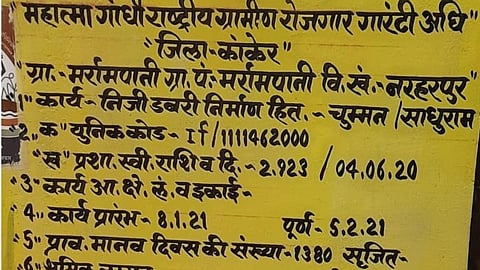 महात्मा गांधी राष्ट्रीय ग्रामीण रोजगार गारंटी अधि"
"जिला-कांकेर"
ग्रा.- मर्रामपानी ग्रा.पं.- मर्रामपानी वि.खं.- नरहरपुर"
"कार्य - निजी डबरी निर्माण हित.- चुम्मन/साधुराम
2. "क" युनिक कोड - If/1111462000
"ख" प्रशा. स्वी. राशि व दि. - 2.923 / 04.06.20
"3" कार्य आ. क्षे. लं. व इकाई -
"4" कार्य प्रारंभ - 8.1.21 पूर्ण - 5.2.21
"5" प्राव. मानव दिवस की संख्या - 1380 सृजित -